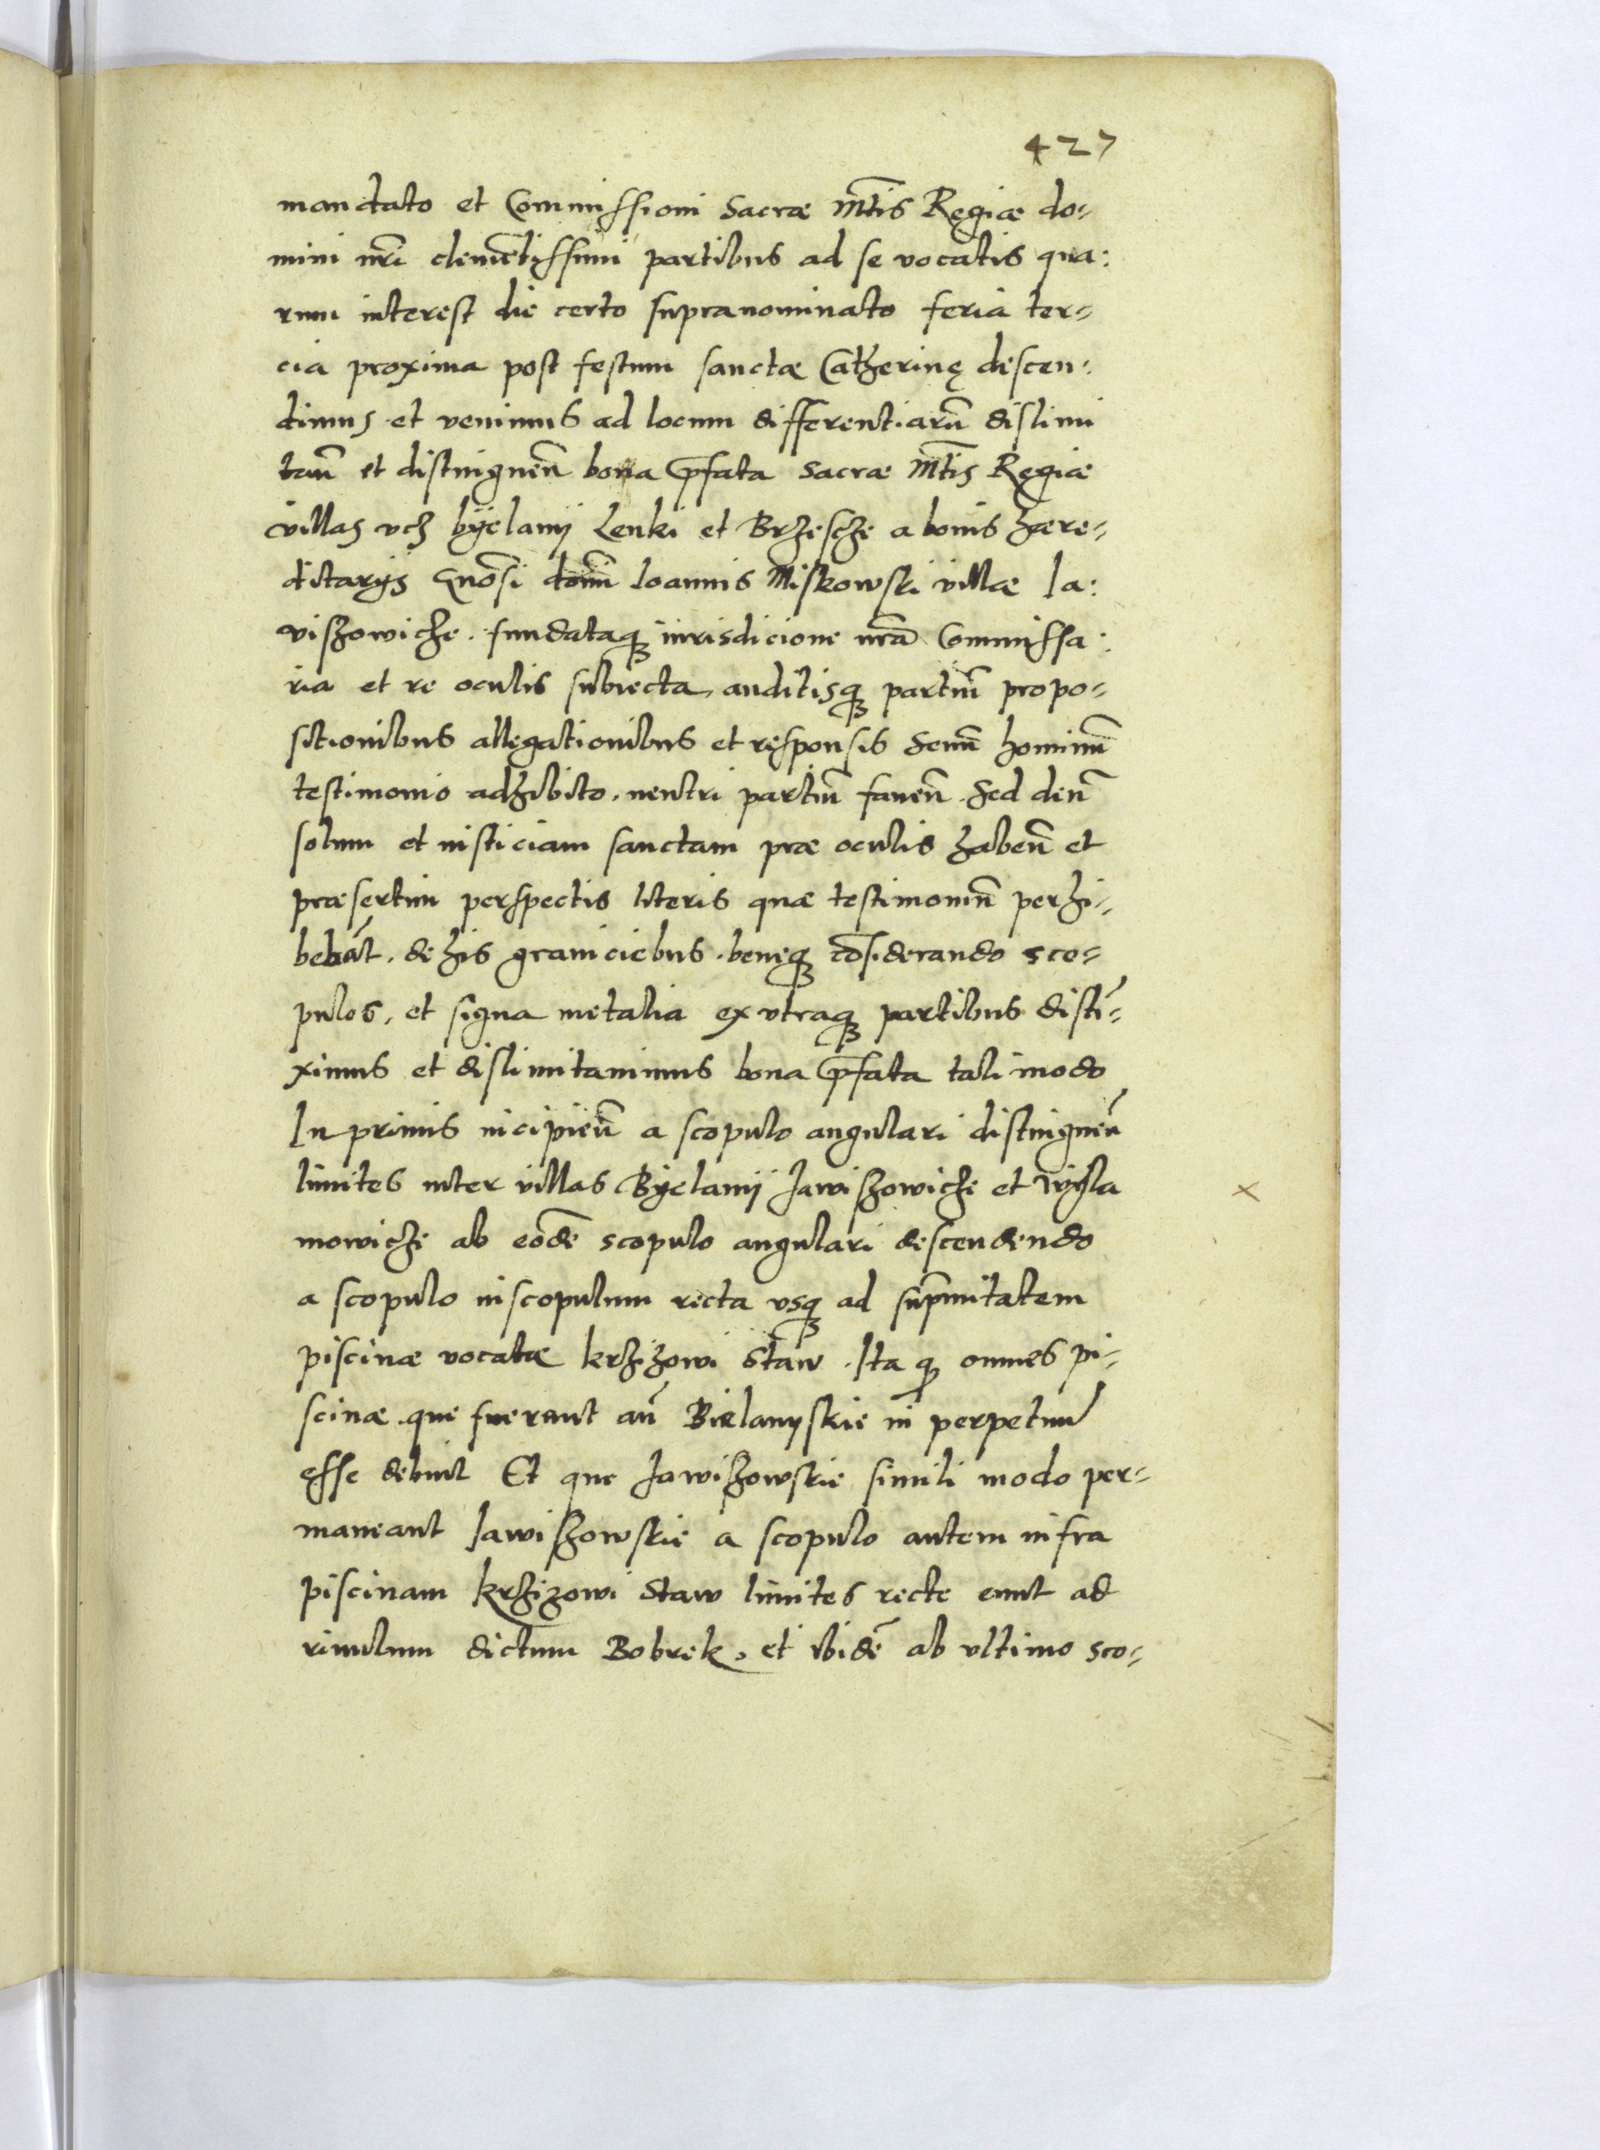 427
mandato et Commissioni Sacræ Mtis Regiæ do-
mini nri clemetissimi partibus ad se vocatis qua:
rum interest die certo supranominato feria ter-
cia proxima post festum sanctæ Catherinę descen-
dimus et venimus ad locum differentiarū dislimi
tan̄ et distinguen̄ bona p̄fata Sacræ Mtis Regiæ
villas vcz byelanij Lenki et Brzescze a bonis hære-
ditarijs Gnosi domi Ioannis Miskowski villæ Ia:
viszowicze. fundataq iurisdicione nra Commissa:
ria et re oculis subiecta, auditisq partiū propo-
sitionibus allegationibus et responsis Senū hominū
testimonio adhibito. neutri partiū fauen̄. Sed deū
solum et iusticiam sanctam præ oculis haben̄ et
præsertim perspectis literis quæ testimoniū perhi-
bebāt. de his graniciebus. beneq cōsiderando sco-
pulos, et signa metalia ex vtraq partibus disti-
ximus et dislimitauimus bona p̄fata tali modo
In primis incipien̄ a scopulo angulari distinguen̄
limites inter villas Byelanij Jawiszowicze et Wÿla
mowicze ab eodē scopulo angulari descendendo
a scopulo in scopulum recta vsq ad sup̄mitatem
piscinæ vocatæ krzizowi Staw. Ita q omnes pi-
scinæ. que fuerunt an̄ Bielanyskie in perpetuū
esse debnt Et que Jawiszowskie simili modo per-
maneant Iawiszowskie a scopulo autem infra
piscinam krzizowi Staw limites recte eunt ad
riuulum dictum Bobrek. et ibidē ab vltimo sco-